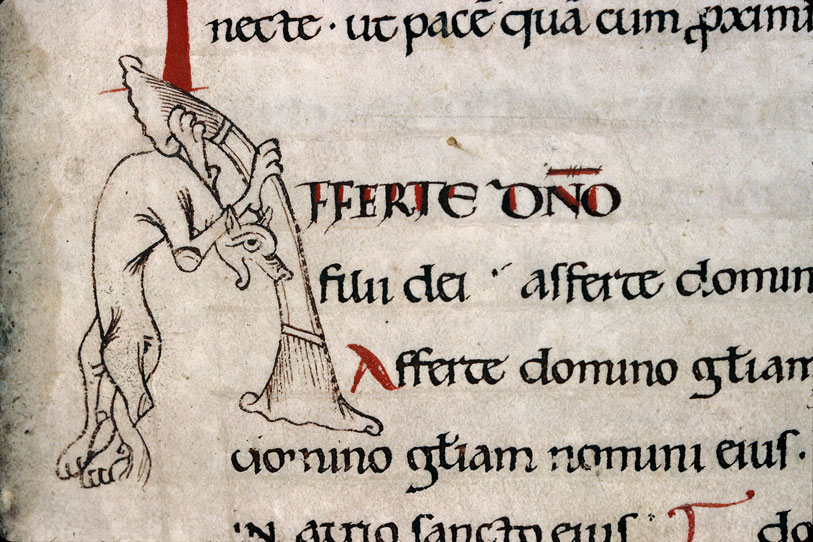 necte · ut pacē quā cum ꝓximi
AFFERTE DN̄O
filii dei afferte domin
Afferte domino gl̄iam
domino gl̄iam nomini eius ·
IN atrio sancto eius T do